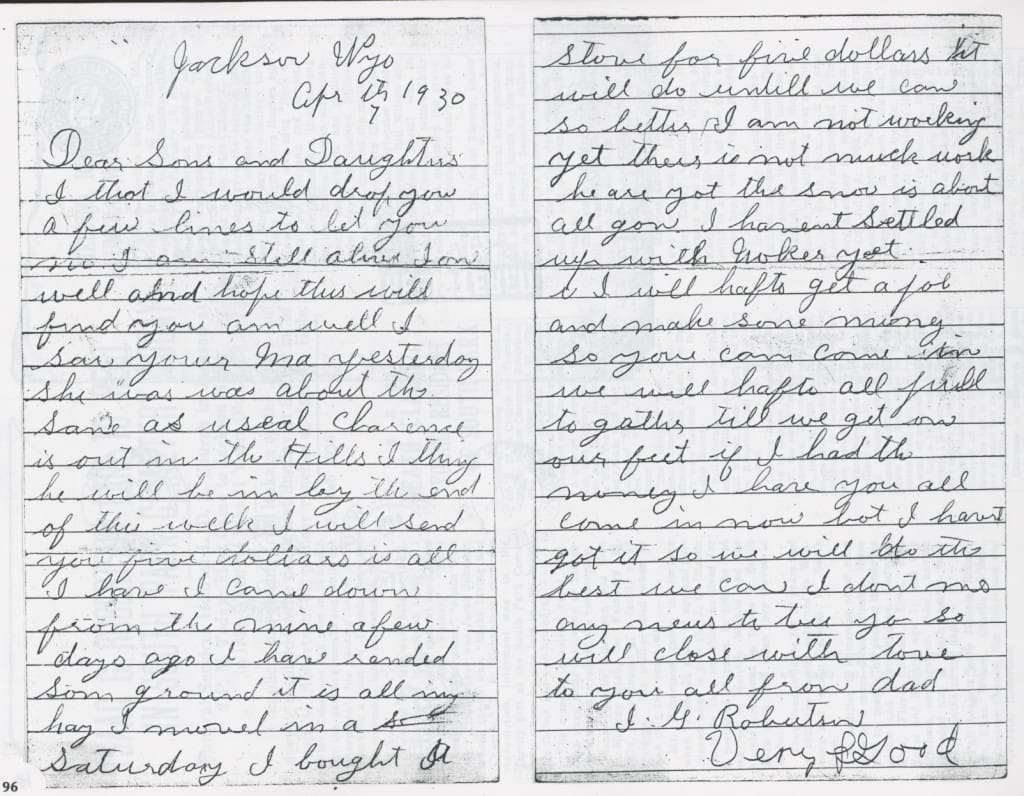 Jackson Wyo
Apr 7th 1930
Dear Sons and Daughters
I that I would drop you
a few lines to let you
no I am still alive I am
well and hope this will
find you am well I
saw your Ma yesterday
she was was about the
same as useal Clarence
is out in the Hills I thing
he will be in by the end
of the week I will send
you five dollars is all
I have I came down
from the mine a few
days ago I have rended
som ground it is all my
hay I moved in a
Saturday I bought a
stove for five dollars it
will do untill we can
so better I am not working
yet theirs is not much work
heare yot the snow is about
all gon I havent settled
up with Nokes yet
I will hafto get a job
and make some mony
so your can come in
we will hafto all pull
to gather till we get on
our feet if I had the
money I have you all
come in now but I havnt
got it so we will do the
best we can I dont no
any news to tell yo so
will close with love
to you all from dad
J. G. Robertson
Very Good
96